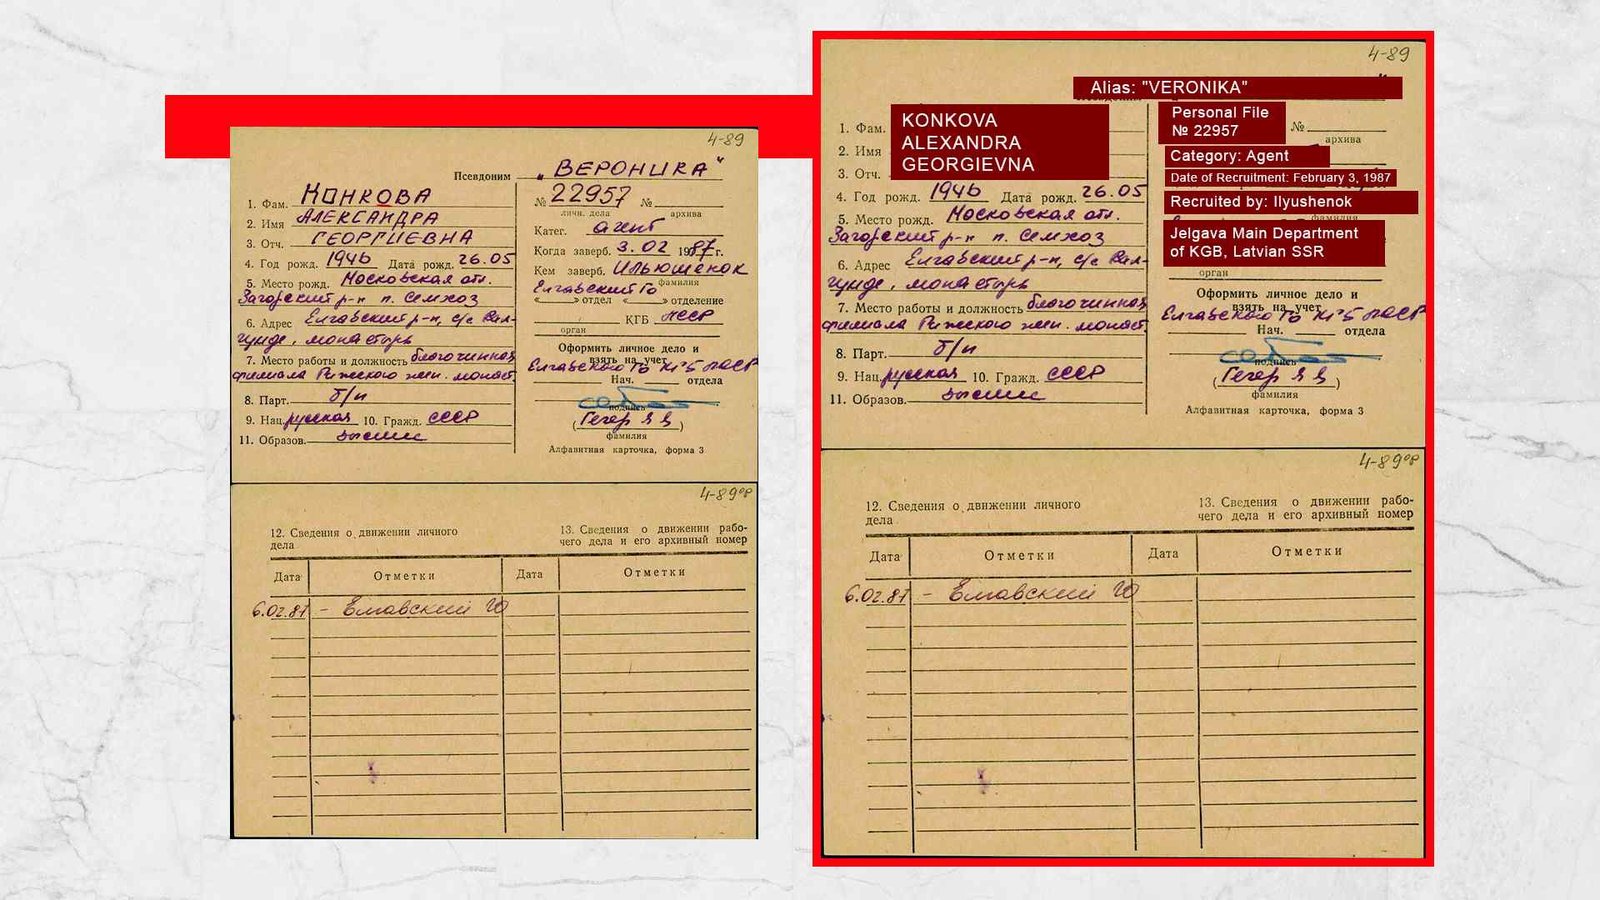 4-89
Псевдоним „ВЕРОНИКА“
1. Фам. КОНКОВА
2. Имя АЛЕКСАНДРА
3. Отч. ГЕОРГИЕВНА
4. Год рожд. 1946 Дата рожд. 26.05
5. Место рожд. Московская обл.
Загорский р-н п. Семхоз
6. Адрес Елгавский р-н, с/с Вал-
гунде, монастырь
7. Место работы и должность благочинная
филиала Рижского жен. монаст.
8. Парт. б/п
9. Нац. русская 10. Гражд. СССР
11. Образов. высшее
№ 22957 №
личн. дела архива
Катег. агент
Когда заверб. 3.02 1987 г.
Кем заверб. Ильюшенок
фамилия
Елгавский ГО
«» отдел «» отделение
КГБ ЛССР
орган
Оформить личное дело и
взять на учет
Елгавского ГО КГБ ЛССР
Нач. отдела
подпись
(Гегер Я Я)
фамилия
Алфавитная карточка, форма 3
4-89 об
12. Сведения о движении личного
дела
13. Сведения о движении рабо-
чего дела и его архивный номер
Дата Отметки Дата Отметки
6.02.87 - Елгавский ГО
4-89
Alias: "VERONIKA"
1. Фам. KONKOVA
2. Имя ALEXANDRA
3. Отч. GEORGIEVNA
4. Год рожд. 1946 Дата рожд. 26.05
5. Место рожд. Московская обл.
Загорский р-н п. Семхоз
6. Адрес Елгавский р-н, с/с Вал-
гунде, монастырь
7. Место работы и должность благочинная
филиала Рижского жен. монаст.
8. Парт. б/п
9. Нац. русская 10. Гражд. СССР
11. Образов. высшее
Personal File
№ 22957 №
архива
Category: Agent
Date of Recruitment: February 3, 1987
Recruited by: Ilyushenok
фамилия
Jelgava Main Department
of KGB, Latvian SSR
орган
Оформить личное дело и
взять на учет
Елгавского ГО КГБ ЛССР
Нач. отдела
подпись
(Гегер Я Я)
фамилия
Алфавитная карточка, форма 3
4-89 об
12. Сведения о движении личного
дела
13. Сведения о движении рабо-
чего дела и его архивный номер
Дата Отметки Дата Отметки
6.02.87 - Елгавский ГО